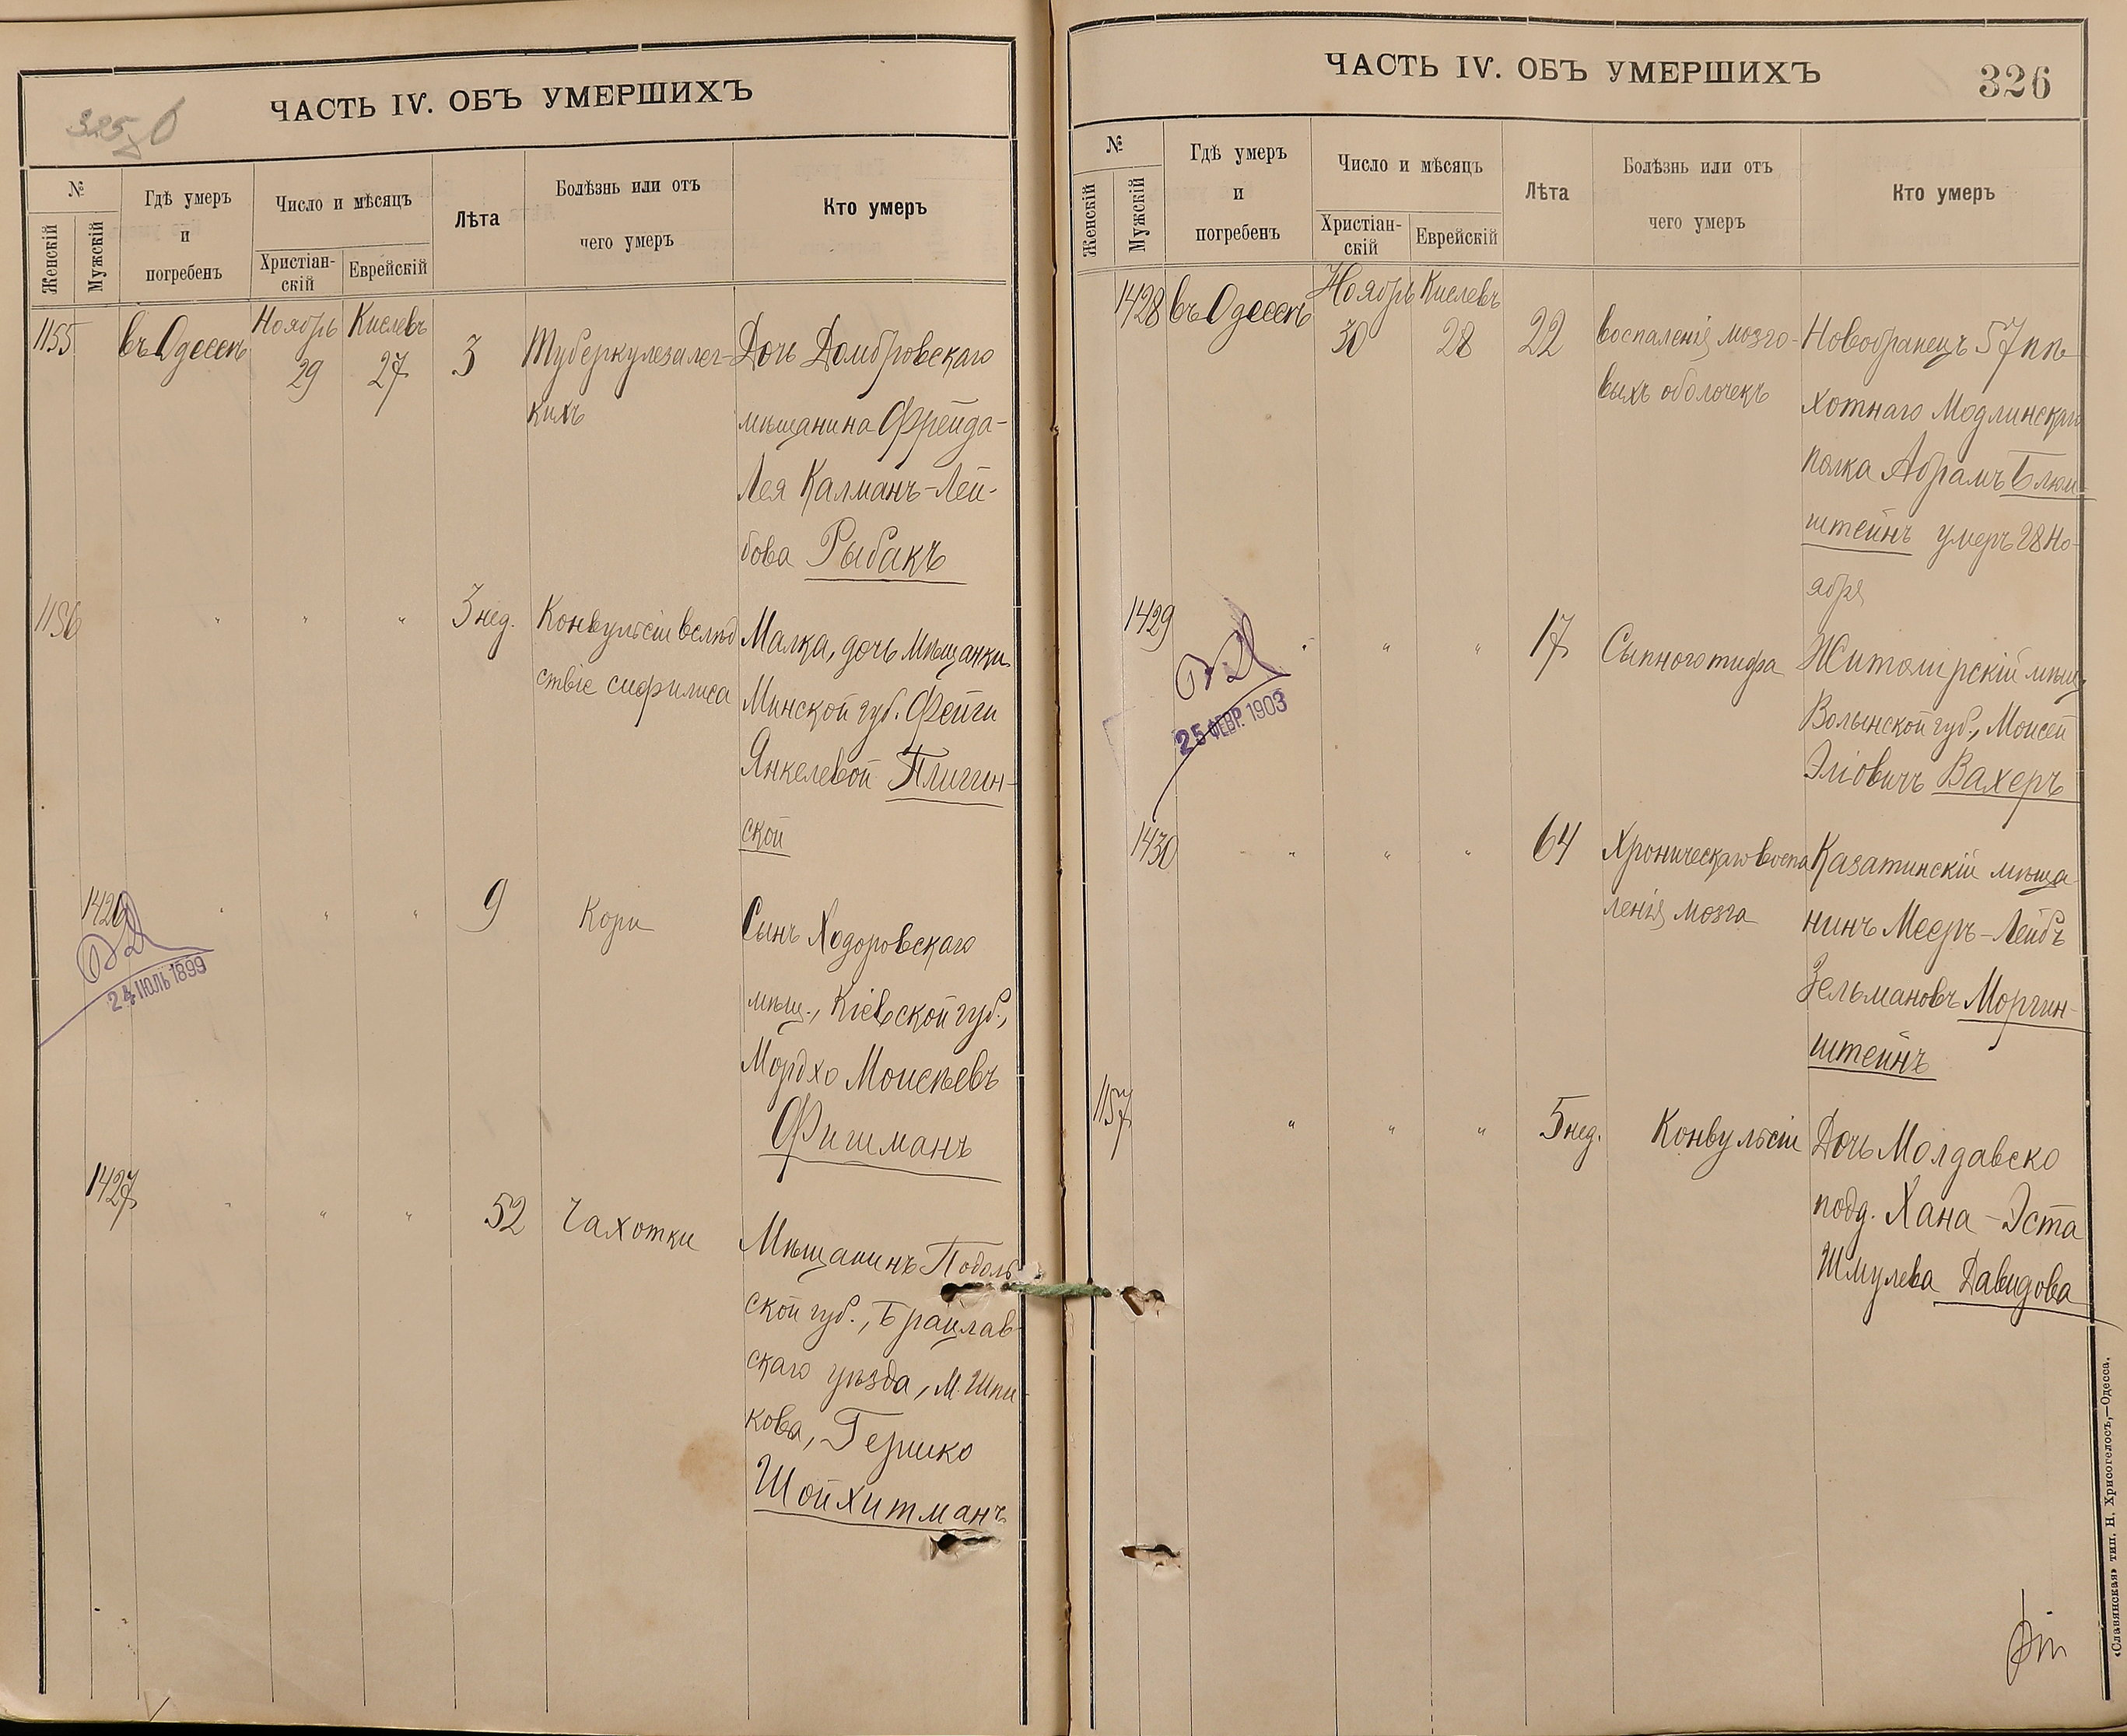 ЧАСТЬ IV. ОБЪ УМЕРШИХЪ
325 об
№
Женскій
Мужскій
Гдѣ умеръ
и
погребенъ
Число и мѣсяцъ
Христіан-
скій
Еврейскій
Лѣта
Болѣзнь или отъ
чего умеръ
Кто умеръ
1155
въ Одессѣ
Ноябрь
29
Кислевъ
27
3
Туберкулеза лег-
кихъ
Дочь Домбровскаго
мѣщанина Фрейда-
Лея Калманъ-Лей-
бова Рыбакъ
1156
" " "
3 нед.
Конвульсіи вслѣд
ствіе сифилиса
Малка, дочь мѣщанки
Минской губ. Фейги
Янкелевой Плиггин-
ской
1426
24 ІЮЛЬ 1899
" " "
9
Кори
Сынъ Ходоровскаго
мѣщ., Кіевской губ.,
Мордхо Моисѣевъ
Фишманъ
1427
" " "
52
Чахотки
Мѣщанинъ Подоль
ской губ., Брацлав-
скаго уѣзда, м. Шпи-
кова, Гершко
Шойхитманъ
ЧАСТЬ IV. ОБЪ УМЕРШИХЪ
326
№
Женскій
Мужскій
Гдѣ умеръ
и
погребенъ
Число и мѣсяцъ
Христіан-
скій
Еврейскій
Лѣта
Болѣзнь или отъ
чего умеръ
Кто умеръ
1428
въ Одессѣ
Ноябрь
30
Кислевъ
28
22
воспаленія мозго-
выхъ оболочекъ
Новобранецъ 57 пѣ
хотнаго Модлинскаго
полка Абрамъ Блюм-
штейнъ умеръ 28 Но-
ября
1429
25 ФЕВР. 1903
" " "
17
Сыпного тифа
Житомірскій мѣщ.
Волынской губ., Моисей
Эліовичъ Вахеръ
1430
" " "
64
Хроническаго воспа
ленія мозга
Казатинскій мѣща
нинъ Мееръ-Лейбъ
Зельмановъ Моргин-
штейнъ
1157
" " "
5 нед.
Конвульсіи
Дочь Молдавско
подд. Хана-Эста
Шмулева Давидова
«Славянская» тип. Н. Хрисогелосъ,—Одесса.